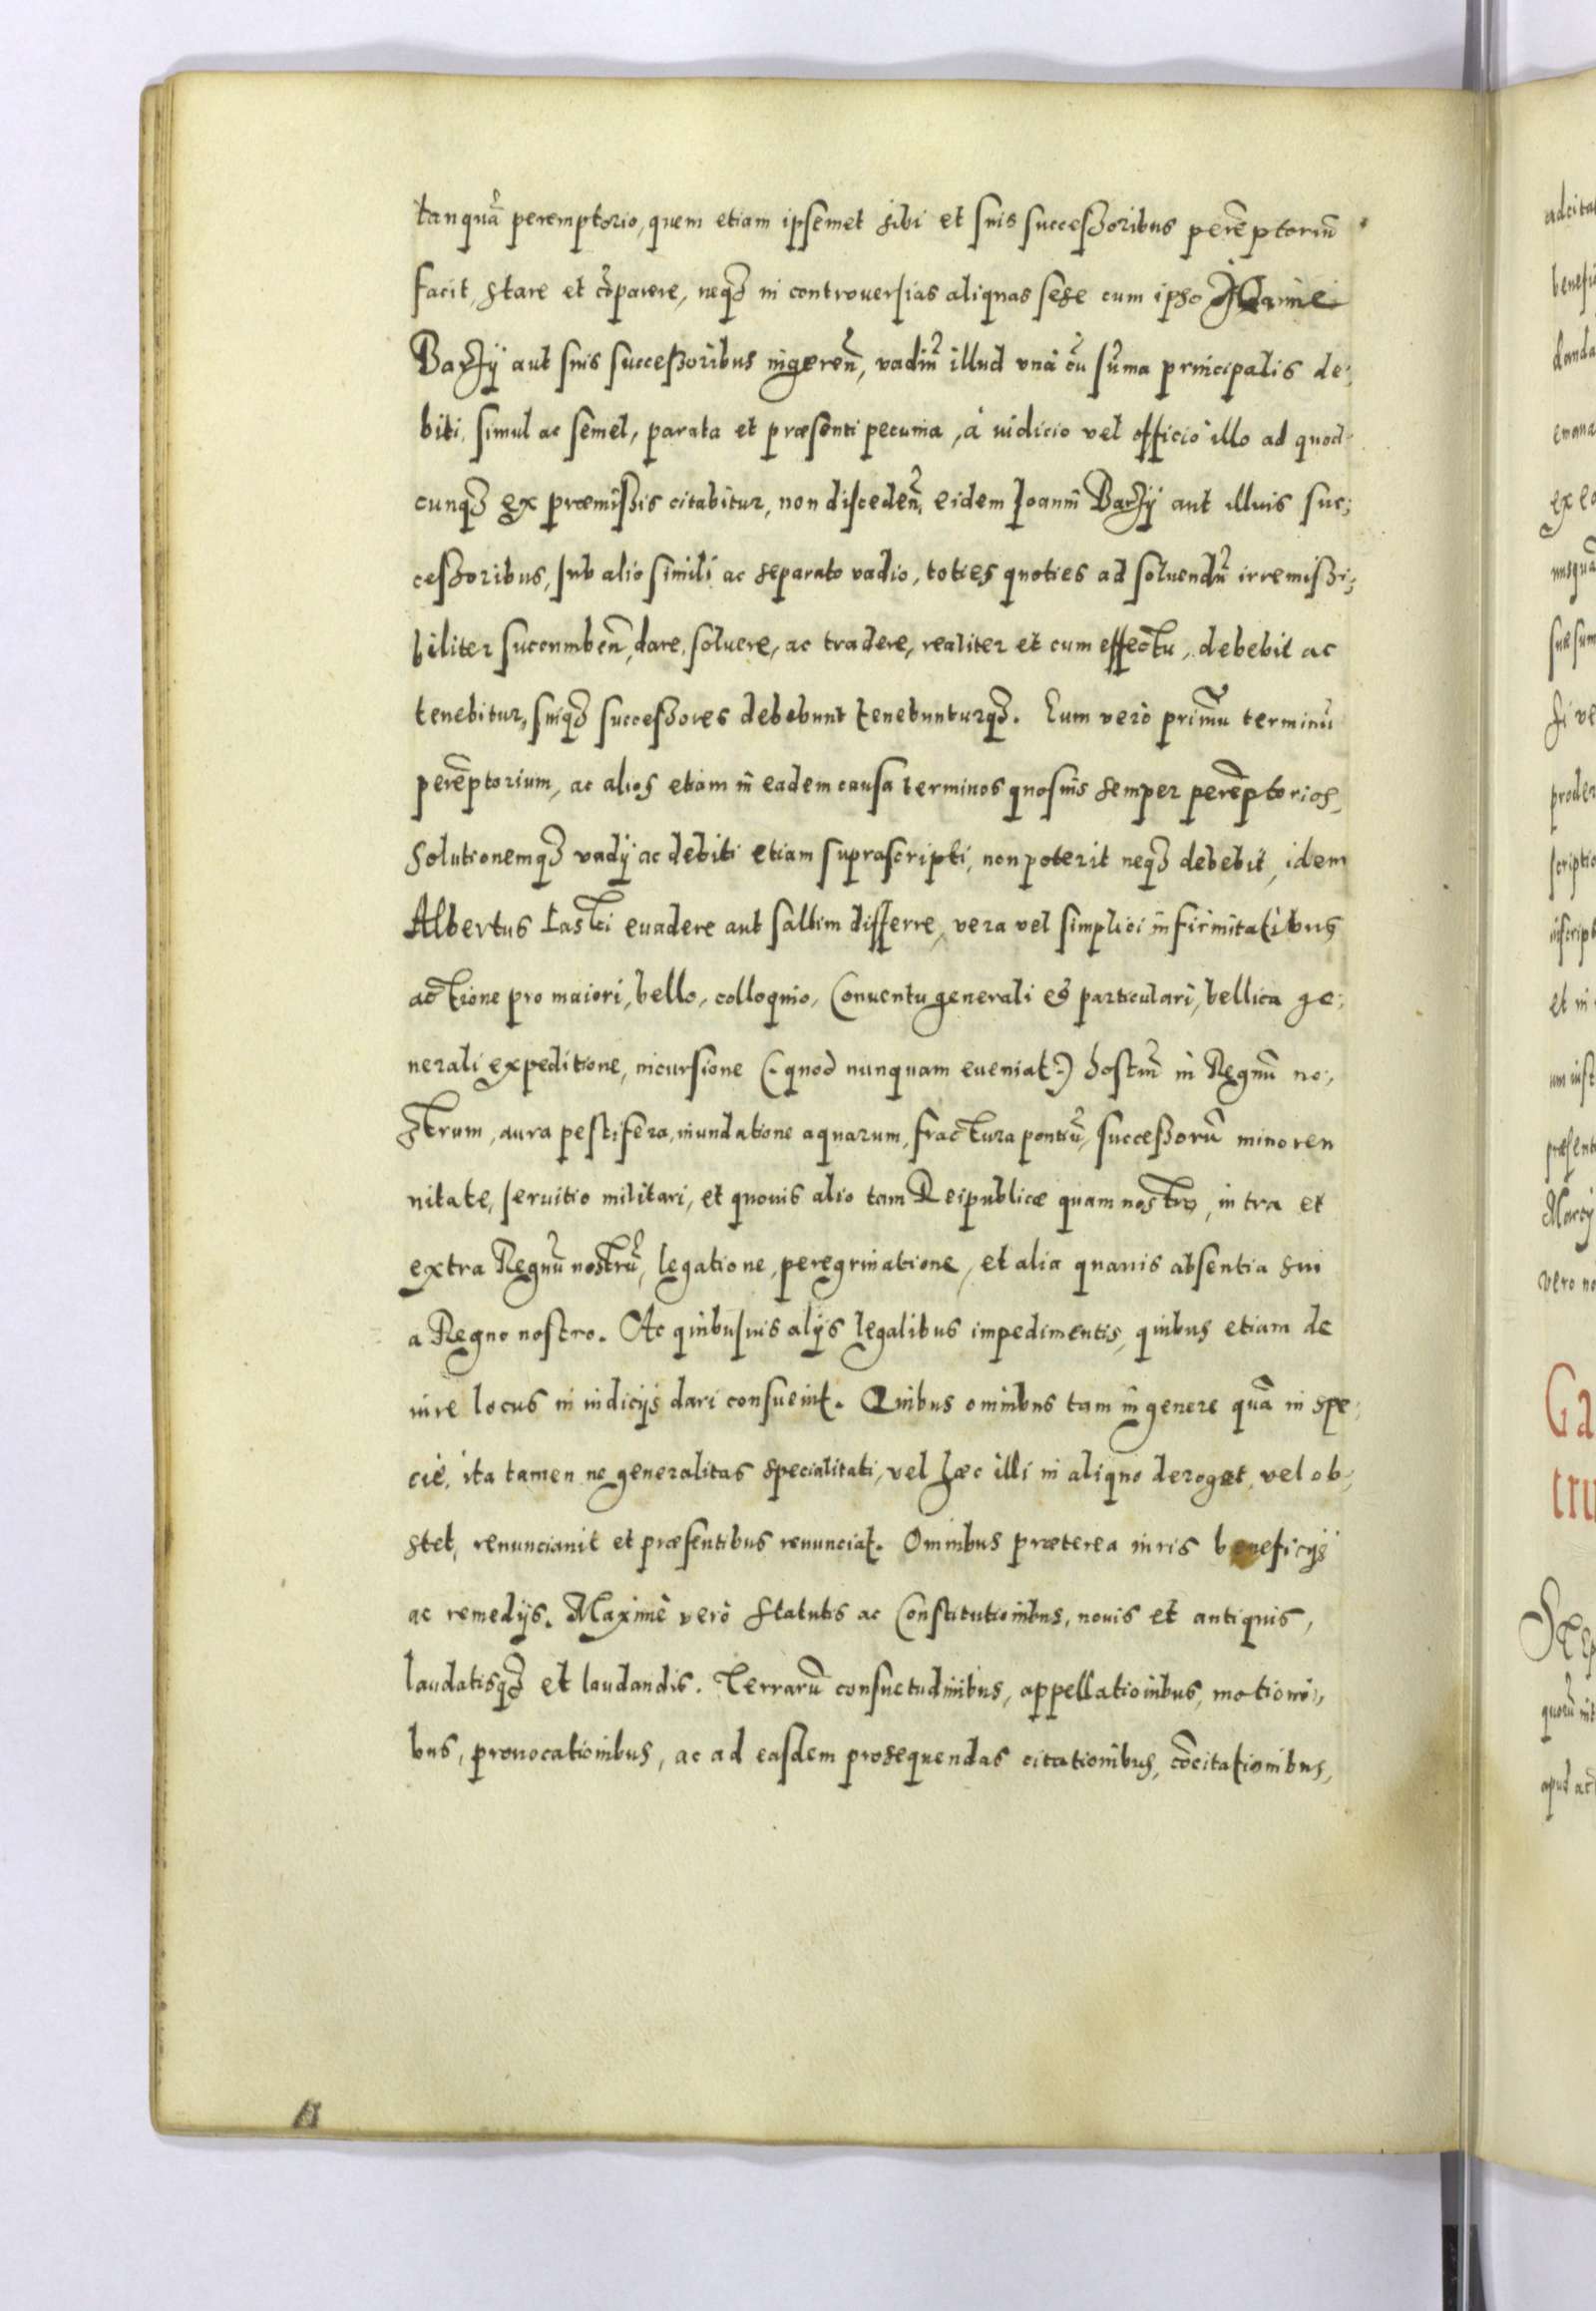 tanquã peremptorio, quem etiam ipsemet sibi et suis successoribus perẽptoriũ
facit, stare et cõparere, neqꝫ in controuersias aliquas sese cum ipso Joanne
Barzÿ aut suis successoribus ingereñ, vadiũ illud vnà cũ sũma principalis de;
biti, simul ac semel, parata et præsenti pecunia, à iudicio vel officio illo ad quod
cunqꝫ ex præmissis citabitur, non discedeñ, eidem Joanni Barzÿ aut illius suc;
cessoribus, sub alio simili ac separato vadio, toties quoties ad soluendũ irremissi;
biliter succumbeñ, dare, soluere, ac tradere, realiter et cum effectu, debebit ac
tenebitur, suiqꝫ successores debebunt tenebunturqꝫ. Eum verò primũ terminũ
perẽptorium, ac alios etiam in eadem causa terminos quosuis semper perẽptorios,
solutionemqꝫ vadÿ ac debiti etiam suprascripti, non poterit neqꝫ debebit, idem
Albertus Łaski euadere aut saltim differre, vera vel simplici infirmitatibus
actione pro maiori, bello, colloquio, Conuentu generali et particulari, bellica ge;
nerali expeditione, incursione (: quod nunquam eueniat :) hostiũ in Regnũ no;
strum, aura pestifera, inundatione aquarum, fractura pontiũ, successorũ minoren
nitate, seruitio militari, et quouis alio tam Reipublicæ quam nostro, intra et
extra Regnũ nostrũ, legatione, peregrinatione, et alia quauis absentia sui
a Regno nostro. Ac quibusuis alÿs legalibus impedimentis, quibus etiam de
iure locus in iudicÿs dari consueuit. Quibus omnibus tam in genere quã in spe;
cie, ita tamen ne generalitas specialitati, vel hæc illi in aliquo deroget, vel ob;
stet, renunciauit et præsentibus renunciat. Omnibus præterea iuris beneficÿs
ac remedÿs. Maximè verò statutis ac Constitutionibus, nouis et antiquis,
laudatisqꝫ et laudandis. Terrarũ consuetudinibus, appellationibus, motioni;
bus, prouocationibus, ac ad easdem prosequendas citationibus, cõcitationibus,